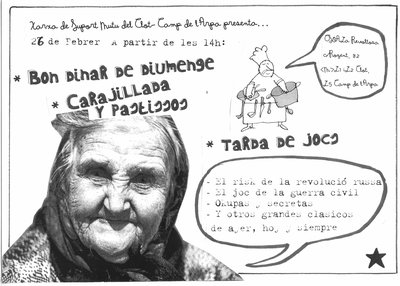 Xarxa de Suport Mutu del Clot-Camp de l'Arpa presenta...
26 de Febrer a partir de les 14h:
* Bon Dinar de Diumenge
* Carajillada
y Pastissos
Revoltosa
Rogent, 82
Clot,
L5 Camp de l'Arpa
* Tarda de Jocs
- El risk de la revolució russa
- El joc de la guerra civil
- Okupas y secretas
- Y otros grandes clasicos
de ayer, hoy y siempre